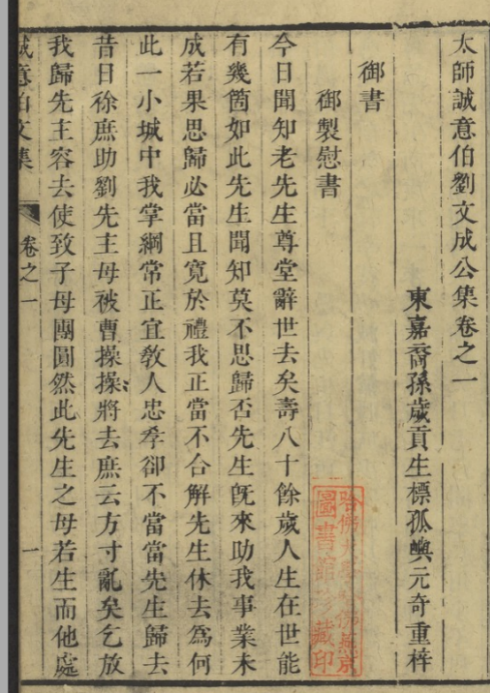 太師誠意伯劉文成公集卷之一
東嘉裔孫歲貢生標孤嶼元奇重梓
御書
御製慰書
今日聞知老先生尊堂辭世去矣壽八十餘歲人生在世能
有幾箇如此先生聞知莫不思歸否先生旣來助我事業未
成若果思歸必當且寬於禮我正當不合解先生休去為何
此一小城中我掌綱常正宜敎人忠孝卻不當當先生歸去
昔日徐庶助劉先主母被曹操操將去庶云方寸亂矣乞放
我歸先主容去使致子母團圓然此先生之母若生而他處
誠意伯文集
卷之一
一
哈佛大學
圖書館
藏印